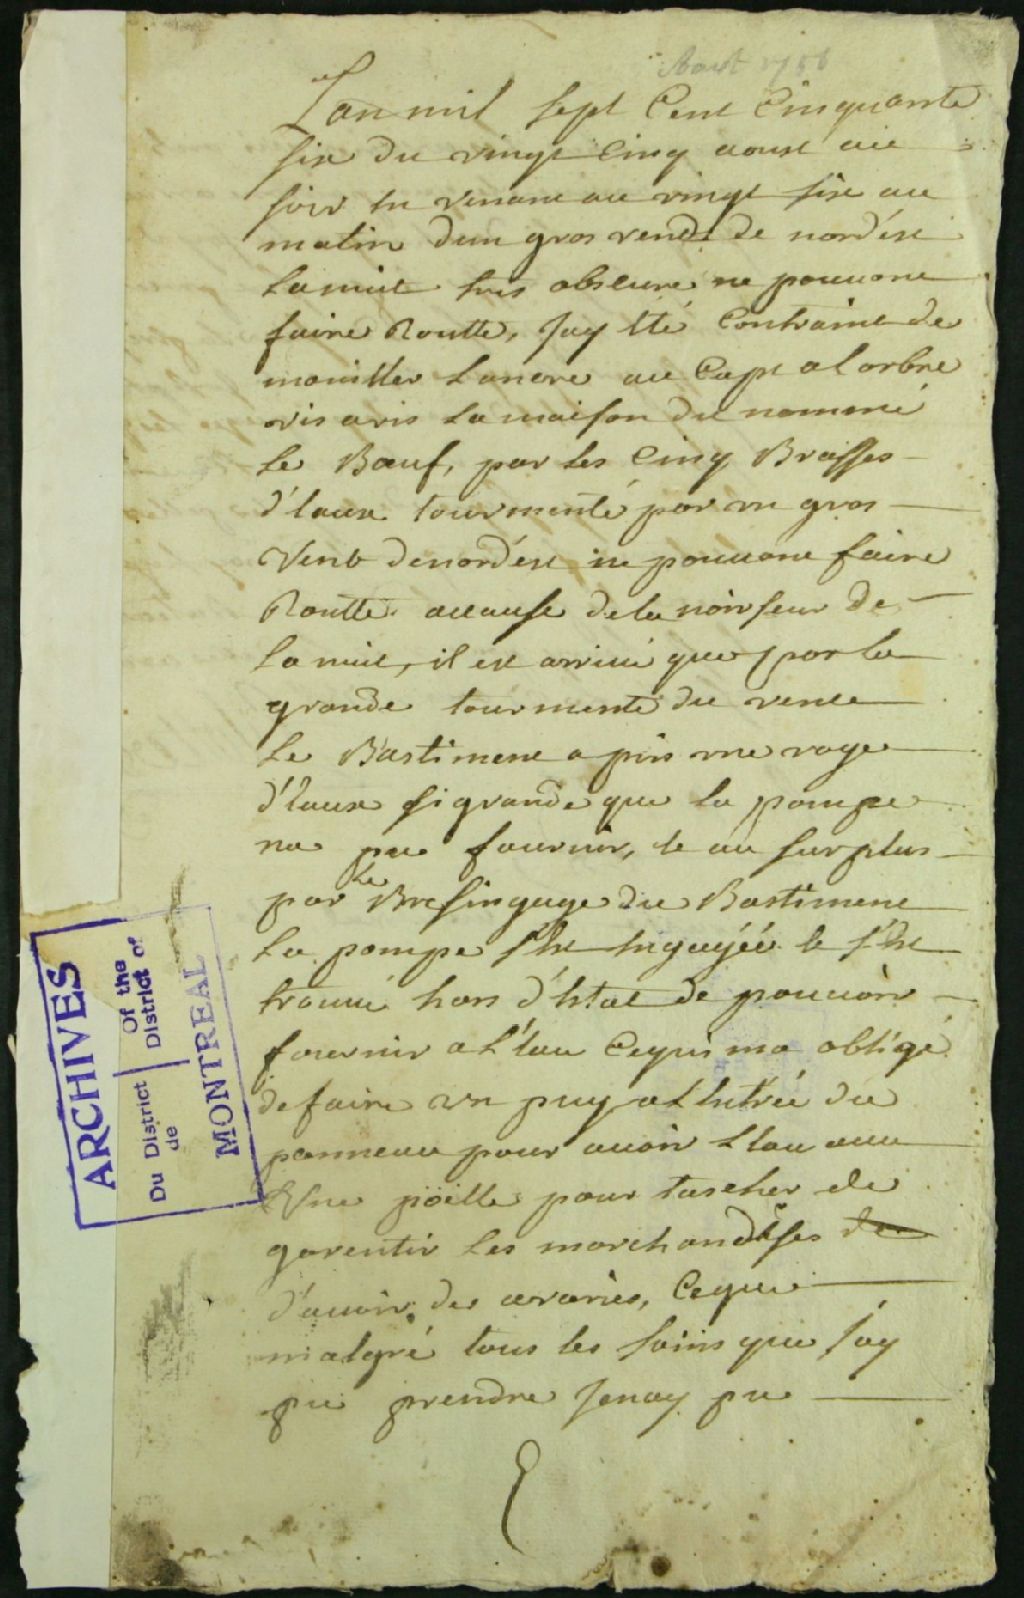 Aout 1756
Lan mil sept Cent Cinquante
six du vingt Cinq aoust au
soir en venant au vingt six au
matin dun gros vend de nord'est
La nuit tres obscure ne pouvant
faire Routte, Jay été Contraint de
mouiller Lancre au Cape a l arbre
vis avis La maison du nommé
Le Bœuf, par les Cinq Brasses
d'Eaux tourmenté par un gros
Vent denord'est ne pouvant faire
Routte acause de la noirseur de
La nuit, il est arrivé que par la
grande tourmente du vent
Le Bastiment a pris une voye
d'Eaux si grande que la pompe
na pu fournir, et au surplus
par Le Bresingage du Bastiment
La pompe s'Est engagée et s'Est
trouvé hors d'Etat de pouvoir
fournir a L'Eau Cequi ma obligé
de faire un puy a L'Entrée du
panneau pour avoir L'Eau avec
Une poëlle pour tascher de
garentir Les marchandises de
d'avoir des avaries, Ceque
malgré tous les soins que Jay
pu prendre Jenay pu
ARCHIVES
Du District de
Of the District of
MONTREAL